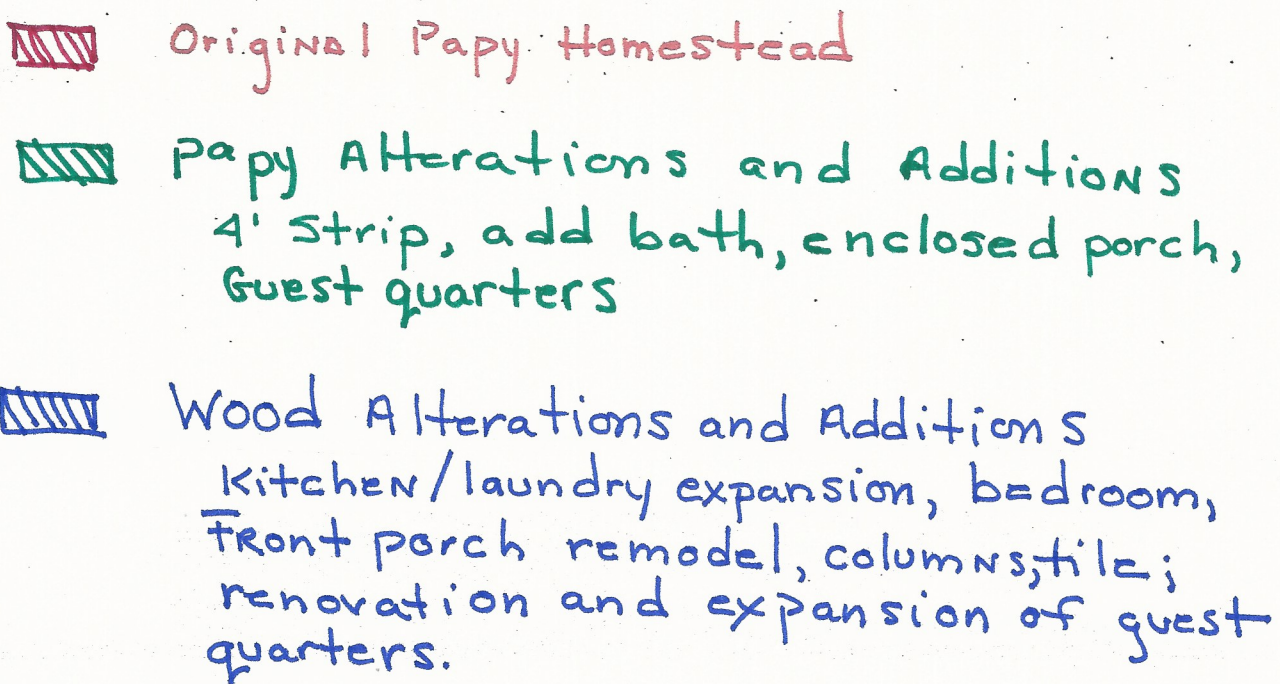 Original Papy Homestead
Papy Alterations and Additions
4' Strip, add bath, enclosed porch,
Guest quarters
Wood Alterations and Additions
Kitchen/laundry expansion, bedroom,
Front porch remodel, columns, tile;
renovation and expansion of guest
quarters.